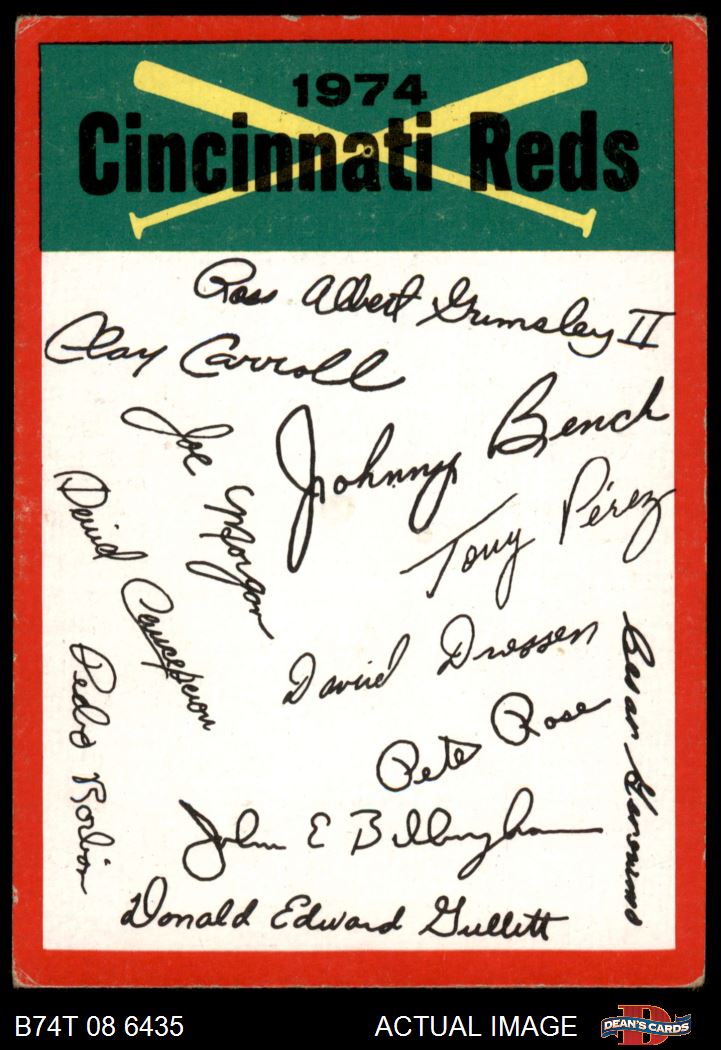 1974
Cincinnati Reds
Ross Albert Grimsley II
Clay Carroll
Joe Morgan
Johnny Bench
David Concepcion
Tony Pérez
David Driessen
Pedro Borbón
Pete Rose
John E Billingham
Donald Edward Gullett
B74T 08 6435
ACTUAL IMAGE
D
DEAN'S CARDS